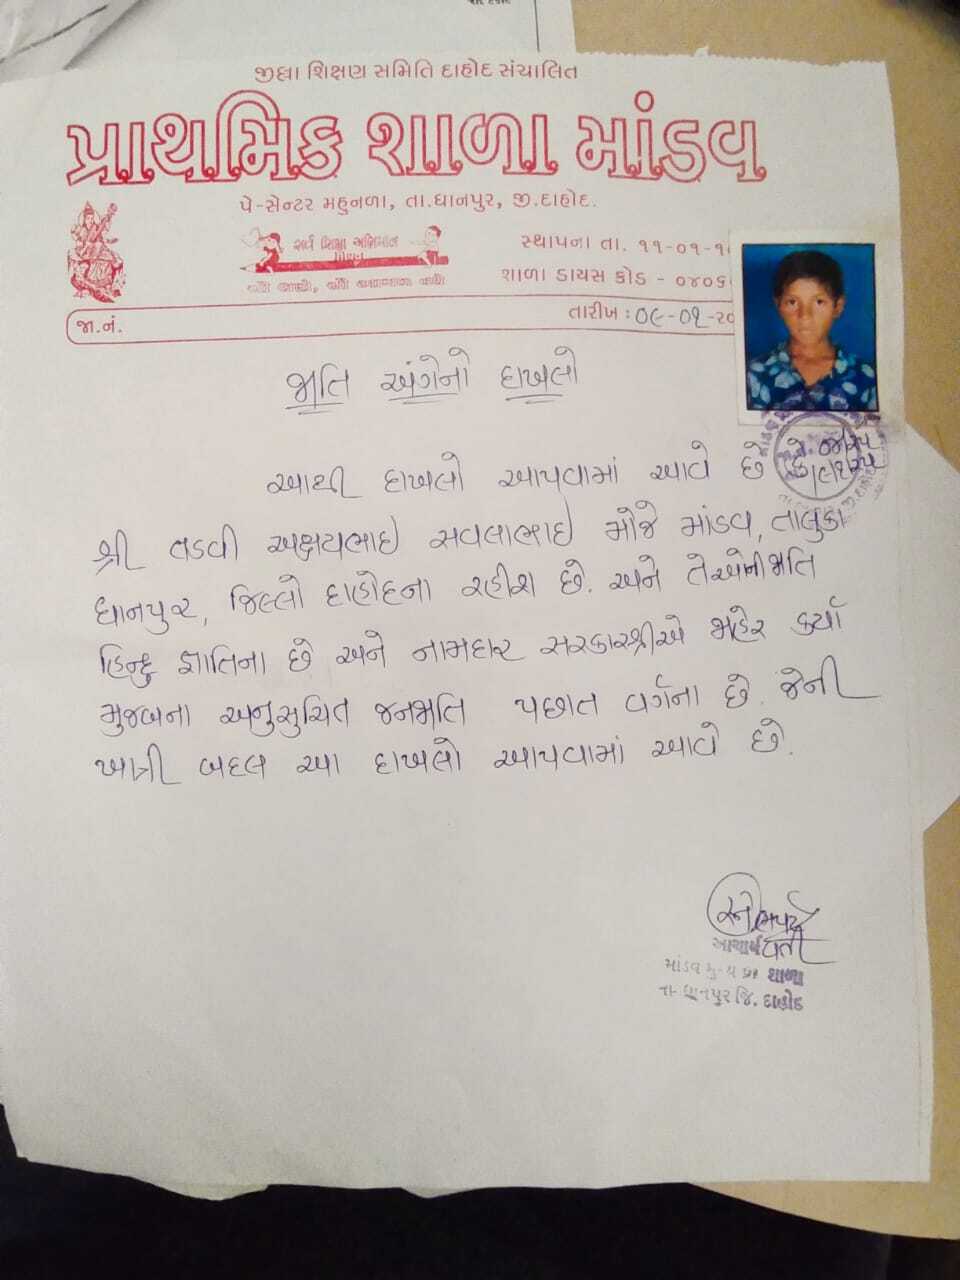 જીલ્લા શિક્ષણ સમિતિ દાહોદ સંચાલિત
પ્રાથમિક શાળા માંડવ
પે-સેન્ટર મહુનળા, તા.ધાનપુર, જી.દાહોદ.
સર્વ શિક્ષા અભિયાન
સ્થાપના તા. ૧૧-૦૧-૧
શાળા ડાયસ કોડ - ૦૪૦૬
જા.નં.
તારીખ : ૦૯-૦૧-૨૦
જાતિ અંગેનો દાખલો
આથી દાખલો આપવામાં આવે છે કે
શ્રી તડવી અક્ષયભાઇ સવલાભાઇ મોજે માંડવ, તાલુકા
ધાનપુર, જિલ્લો દાહોદના રહીશ છે. અને તેઓની જાતિ
હિન્દુ જ્ઞાતિના છે અને નામદાર સરકારશ્રીએ જાહેર કર્યા
મુજબના અનુસુચિત જનજાતિ પછાત વર્ગના છે. જેની
ખાત્રી બદલ આ દાખલો આપવામાં આવે છે.
આચાર્ય
માંડવ મુ-૫ પ્રા શાળા
તા-ધાનપુર જિ. દાહોદ